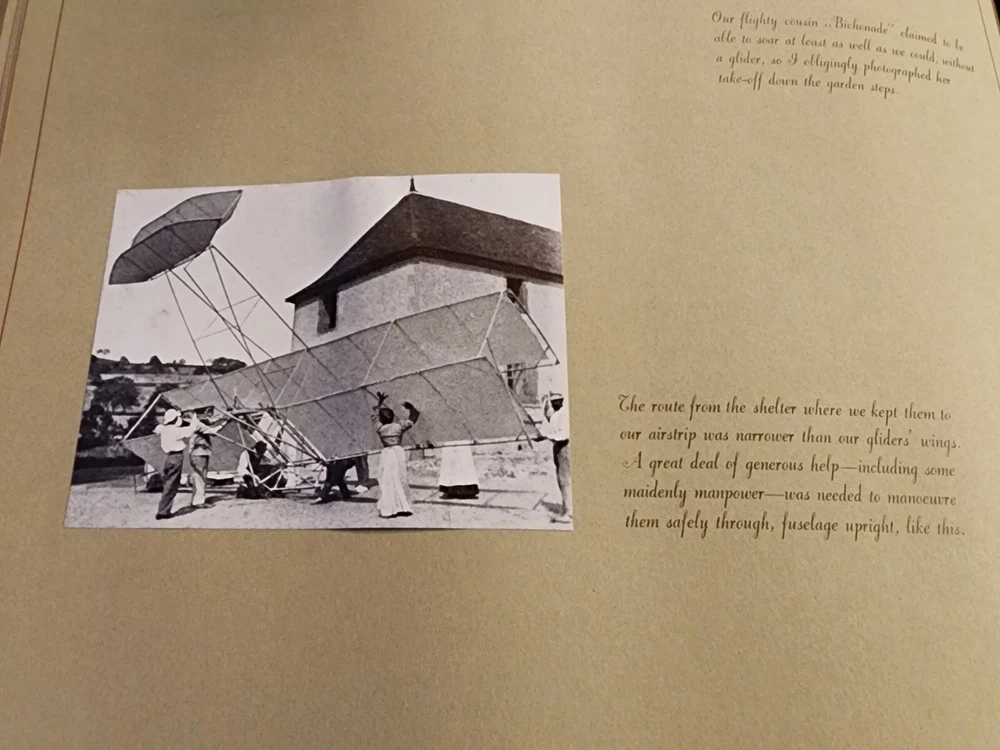 Our flighty cousin „Bichonade” claimed to be
able to soar at least as well as we could, without
a glider, so I obligingly photographed her
take-off down the garden steps.
The route from the shelter where we kept them to
our airstrip was narrower than our gliders' wings.
A great deal of generous help—including some
maidenly manpower—was needed to manoeuvre
them safely through, fuselage upright, like this.